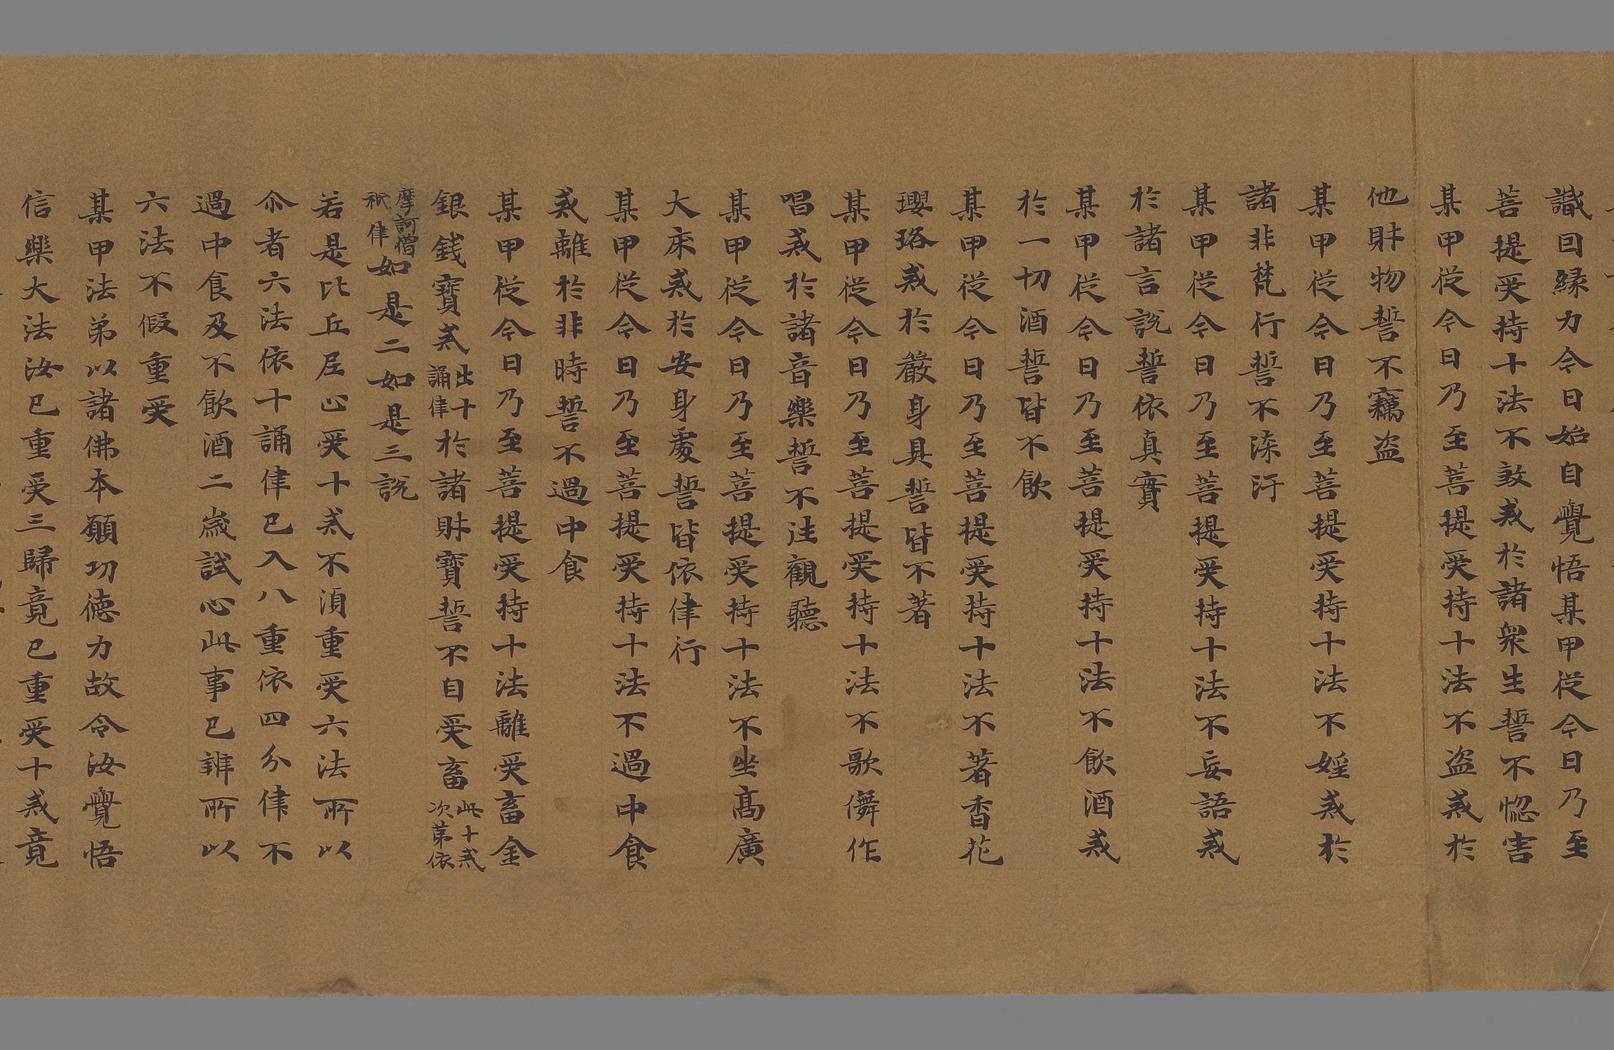 識因緣力今日始自覺悟某甲從今日乃至
菩提受持十法不煞戒於諸衆生誓不惱害
某甲從今日乃至菩提受持十法不盜戒於
他財物誓不竊盜
某甲從今日乃至菩提受持十法不婬戒於
諸非梵行誓不染汙
某甲從今日乃至菩提受持十法不妄語戒
於諸言說誓依真實
某甲從今日乃至菩提受持十法不飲酒戒
於一切酒誓皆不飲
某甲從今日乃至菩提受持十法不著香花
瓔珞戒於嚴身具誓皆不著
某甲從今日乃至菩提受持十法不歌儛作
唱戒於諸音樂誓不往觀聽
某甲從今日乃至菩提受持十法不坐髙廣
大床戒於安身處誓皆依律行
某甲從今日乃至菩提受持十法不過中食
戒離於非時誓不過中食
某甲從今日乃至菩提受持十法離受畜金
銀錢寶戒出十誦律於諸財寶誓不自受畜此十戒次第依
摩訶僧祇律如是二如是三說
若是比丘尼心受十戒不須重受六法所以
尒者六法依十誦律已入八重依四分律不
過中食及不飲酒二歲試心此事已辨所以
六法不假重受
某甲法弟以諸佛本願功德力故令汝覺悟
信樂大法汝已重受三歸竟已重受十戒竟